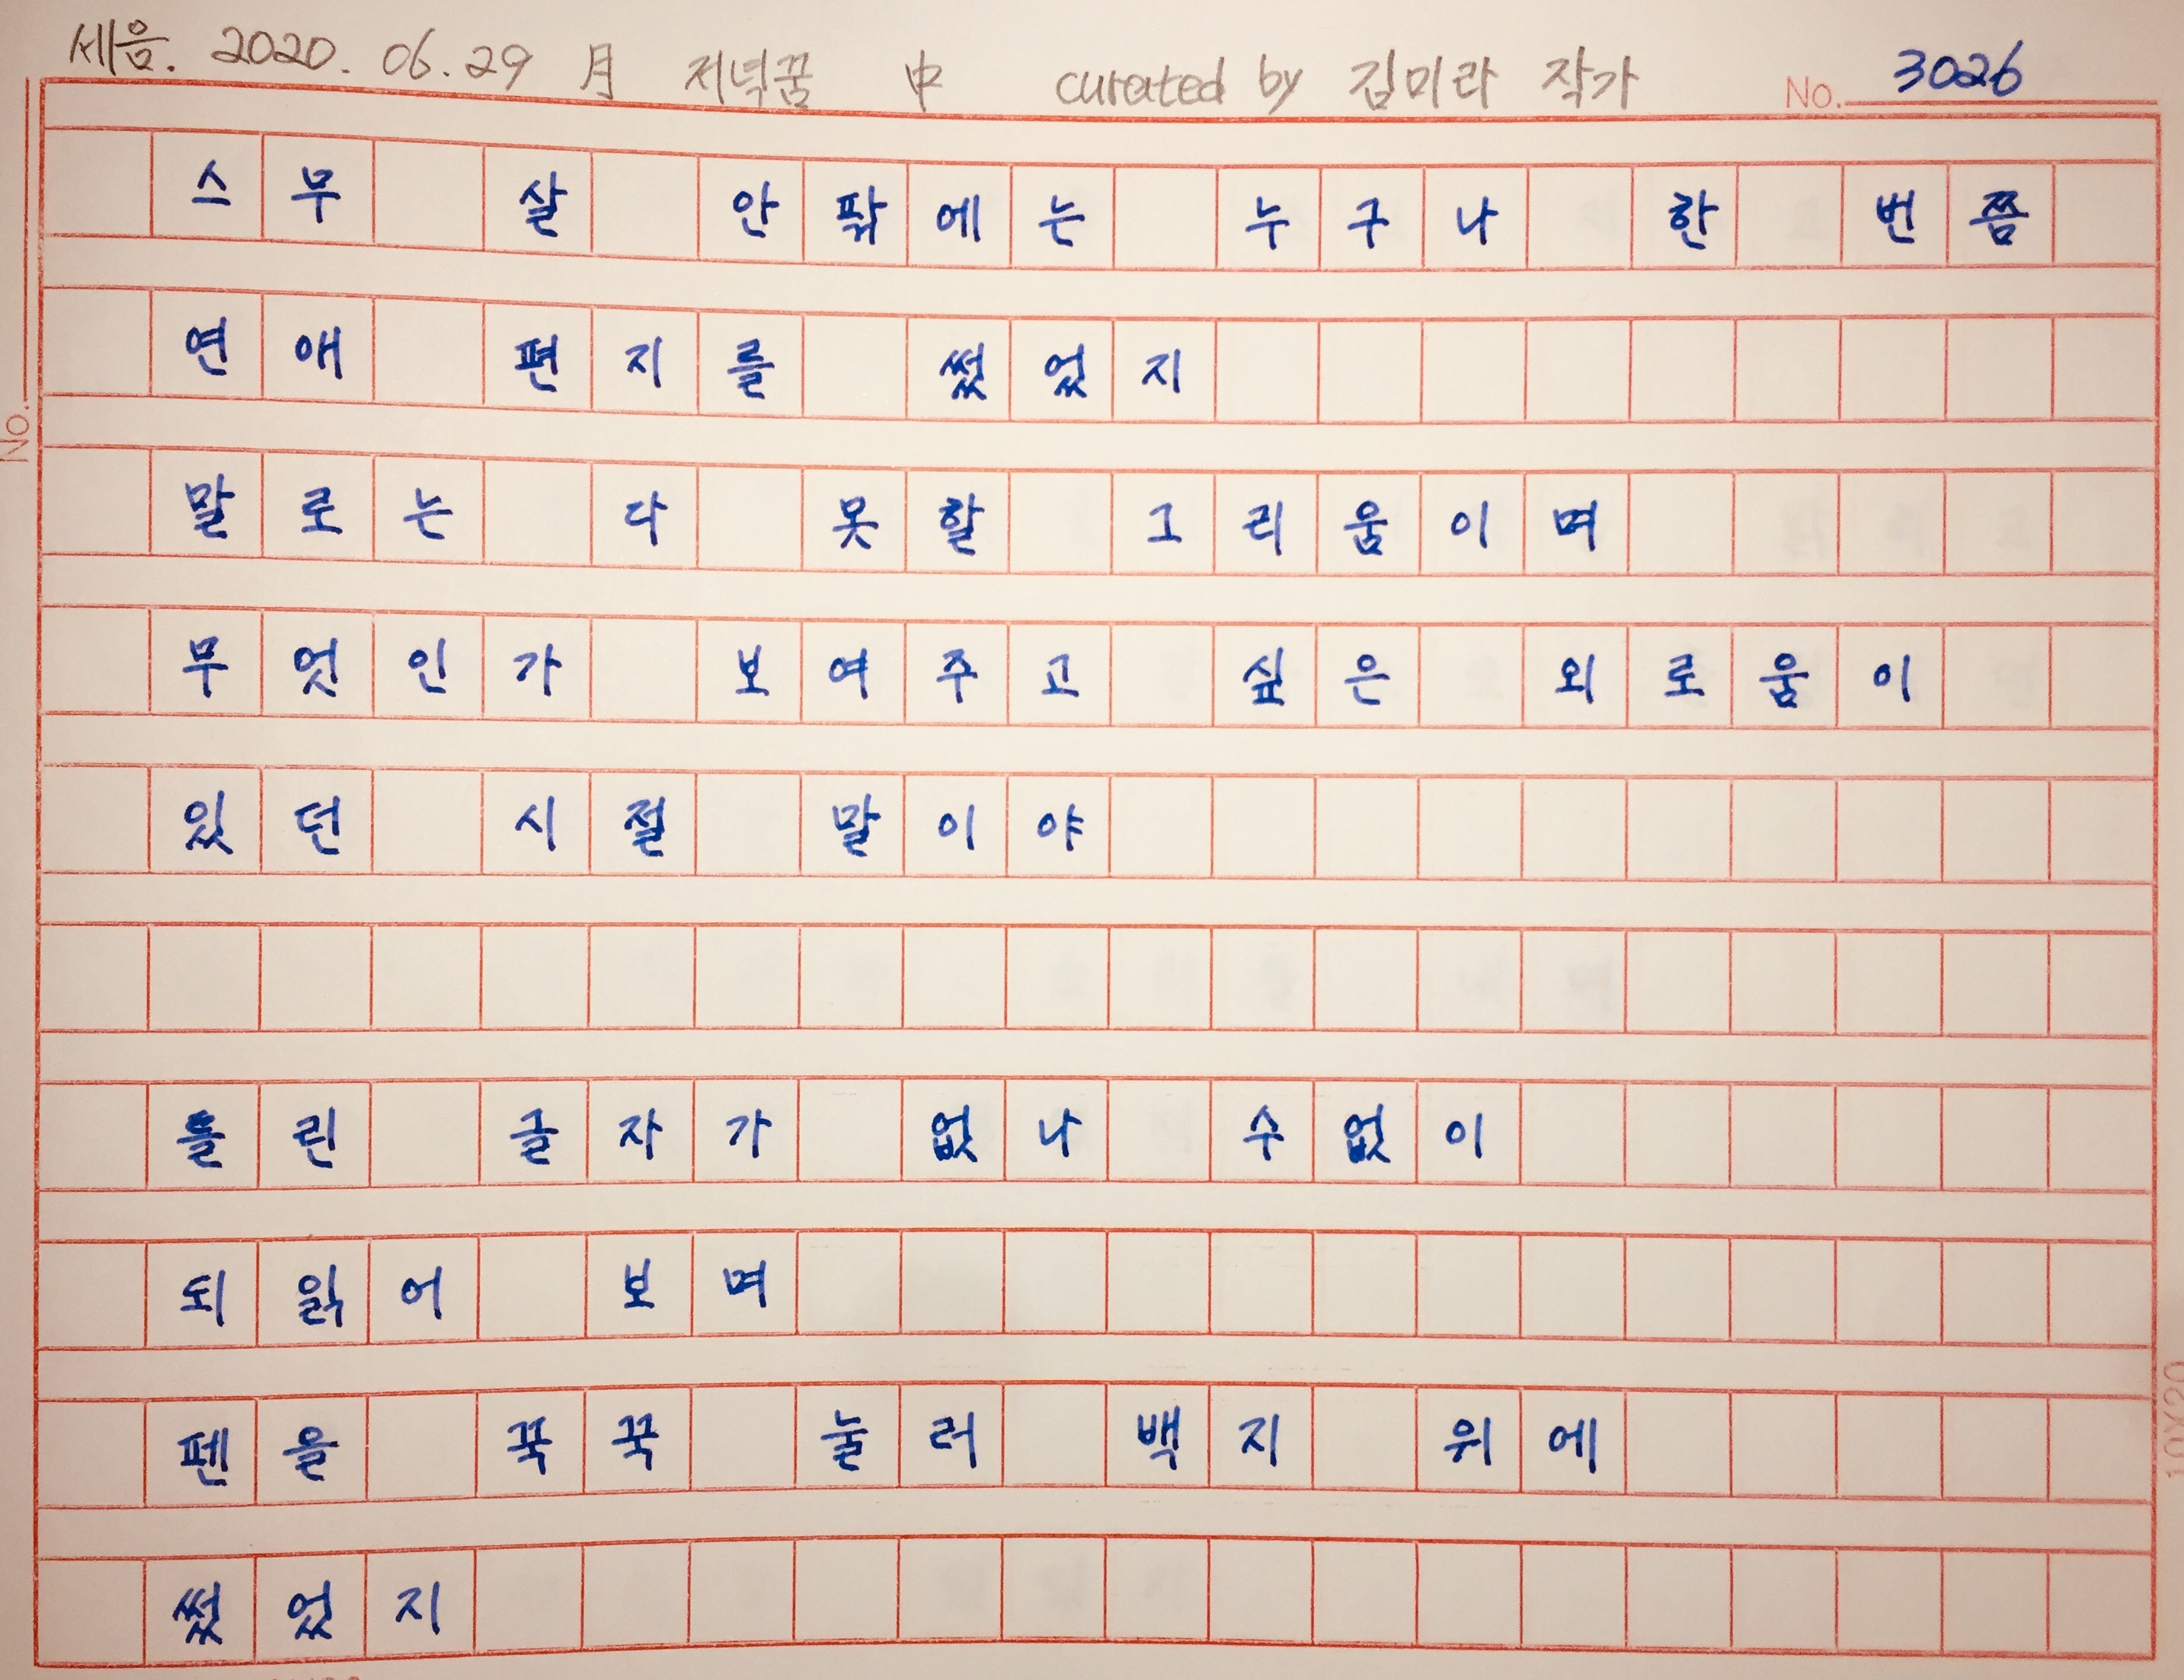 세음. 2020. 06. 29 月 저녁꿈 中 curated by 김미라 작가 No. 3026
스무 살 안팎에는 누구나 한 번쯤
연애 편지를 썼었지
No.
말로는 다 못할 그리움이며
무엇인가 보여주고 싶은 외로움이
있던 시절 말이야
틀린 글자가 없나 수없이
되읽어 보며
펜을 꾹꾹 눌러 백지 위에
10X20
썼었지